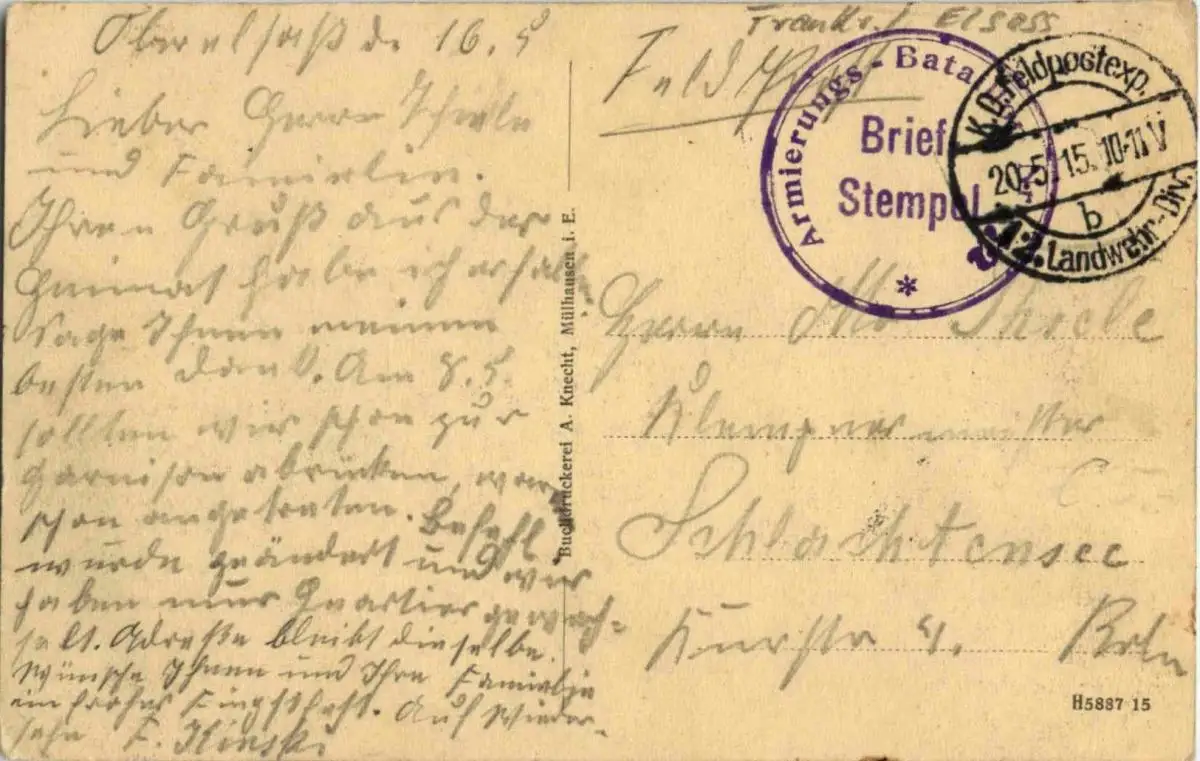 Oberelsaß d. 16. 5
Lieber Herrn Thiele
und Familin.
Ihren Gruß aus der
Heimat habe ich erhalt
sage Ihnen meinen
besten Dank. Am 8. 5.
sollten wir schon zur
Garnison abrücken, war
schon angetraten. Befehl
wurde geändert und wir
haben nur Quartier gewech=
selt. Adreße bleibt dieselbe.
Wünsche Ihnen und Ihre Familje
ein frohes Fingstfest. Auf Wieder-
sehn F.
Buchdruckerei A. Knecht, Mülhausen i. E.
Frankr. / Elsass
Feld Post
Armierungs-Bata
Brief
Stempel
*
K.D. Feldpostexp.
20.5.15. 10-11 V
b
12. Landwehr-Div.
Herrn Thiele
Klempnermeister
Schlachtensee
Kurstr 4. Brln
H5887 15